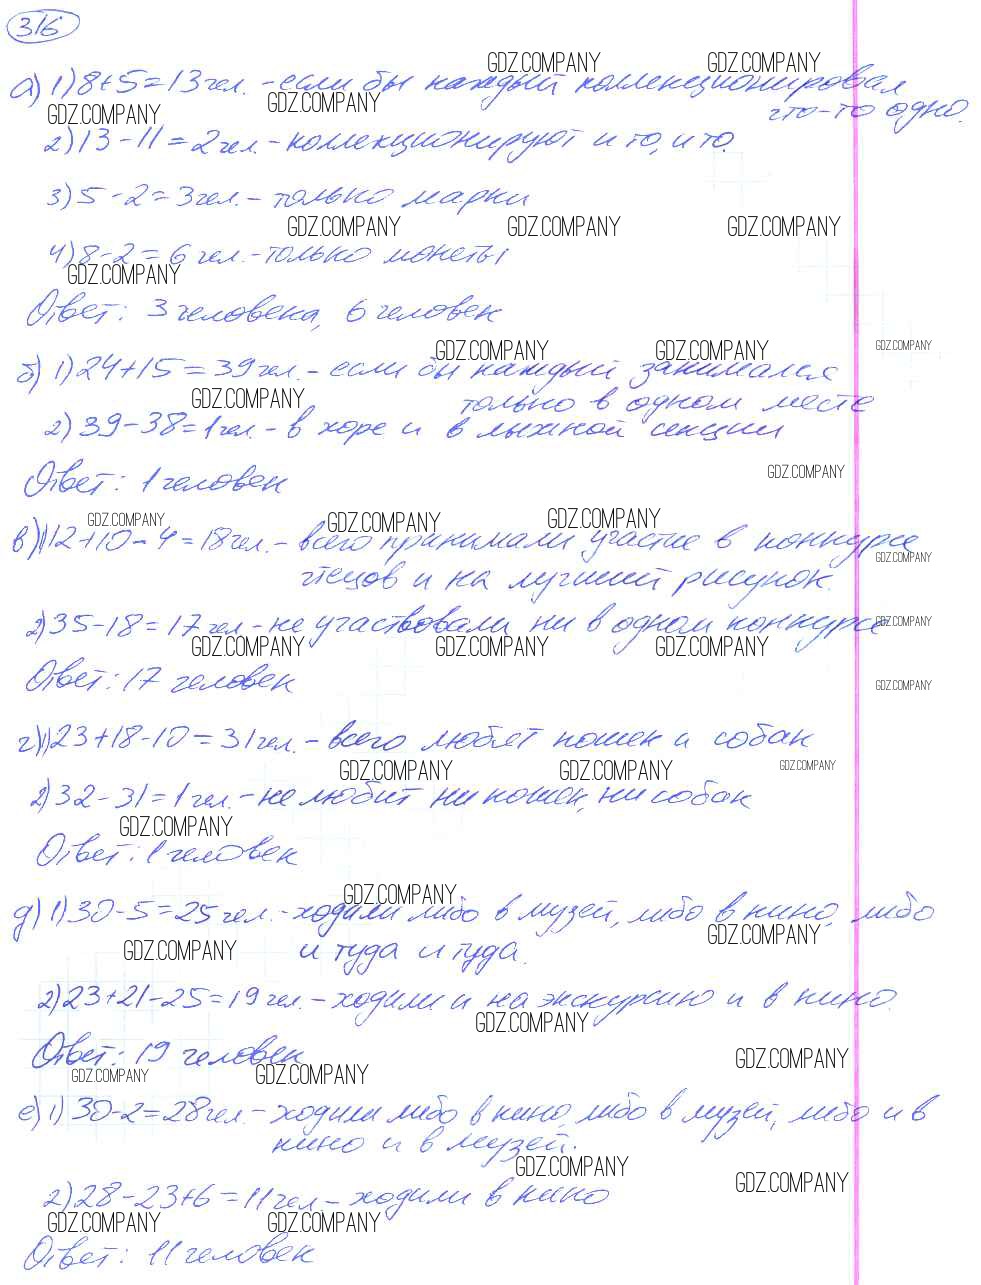 316
GDZ.COMPANY GDZ.COMPANY
а) 1) 8+5=13 чел. - если бы каждый коллекционировал
GDZ.COMPANY GDZ.COMPANY
что-то одно.
2) 13-11=2 чел. - коллекционируют и то, и то.
3) 5-2=3 чел. - только марки
GDZ.COMPANY GDZ.COMPANY GDZ.COMPANY
4) 8-2=6 чел. - только монеты
GDZ.COMPANY
Ответ: 3 человека, 6 человек
GDZ.COMPANY GDZ.COMPANY GDZ.COMPANY
б) 1) 24+15=39 чел. - если бы каждый занимался
GDZ.COMPANY
только в одном месте
2) 39-38=1 чел. - в хоре и в лыжной секции
GDZ.COMPANY
Ответ: 1 человек
GDZ.COMPANY GDZ.COMPANY GDZ.COMPANY
в) 1) 12+10-4=18 чел. - всего принимали участие в конкурсе
GDZ.COMPANY
чтецов и на лучший рисунок.
2) 35-18=17 чел - не участвовали ни в одном конкурсе
GDZ.COMPANY
GDZ.COMPANY GDZ.COMPANY GDZ.COMPANY
Ответ: 17 человек
GDZ.COMPANY
г) 1) 23+18-10=31 чел. - всего любят кошек и собак
GDZ.COMPANY GDZ.COMPANY GDZ.COMPANY
2) 32-31=1 чел. - не любит ни кошек, ни собак
GDZ.COMPANY
Ответ: 1 человек
GDZ.COMPANY
д) 1) 30-5=25 чел. - ходили либо в музей, либо в кино, либо
GDZ.COMPANY
GDZ.COMPANY
и туда и туда.
2) 23+21-25=19 чел. - ходили и на экскурсию и в кино.
GDZ.COMPANY
Ответ: 19 человек
GDZ.COMPANY
GDZ.COMPANY GDZ.COMPANY
е) 1) 30-2=28 чел. - ходили либо в кино, либо в музей, либо и в
кино и в музей.
GDZ.COMPANY
GDZ.COMPANY
2) 28-23+6=11 чел - ходили в кино
GDZ.COMPANY GDZ.COMPANY
Ответ: 11 человек